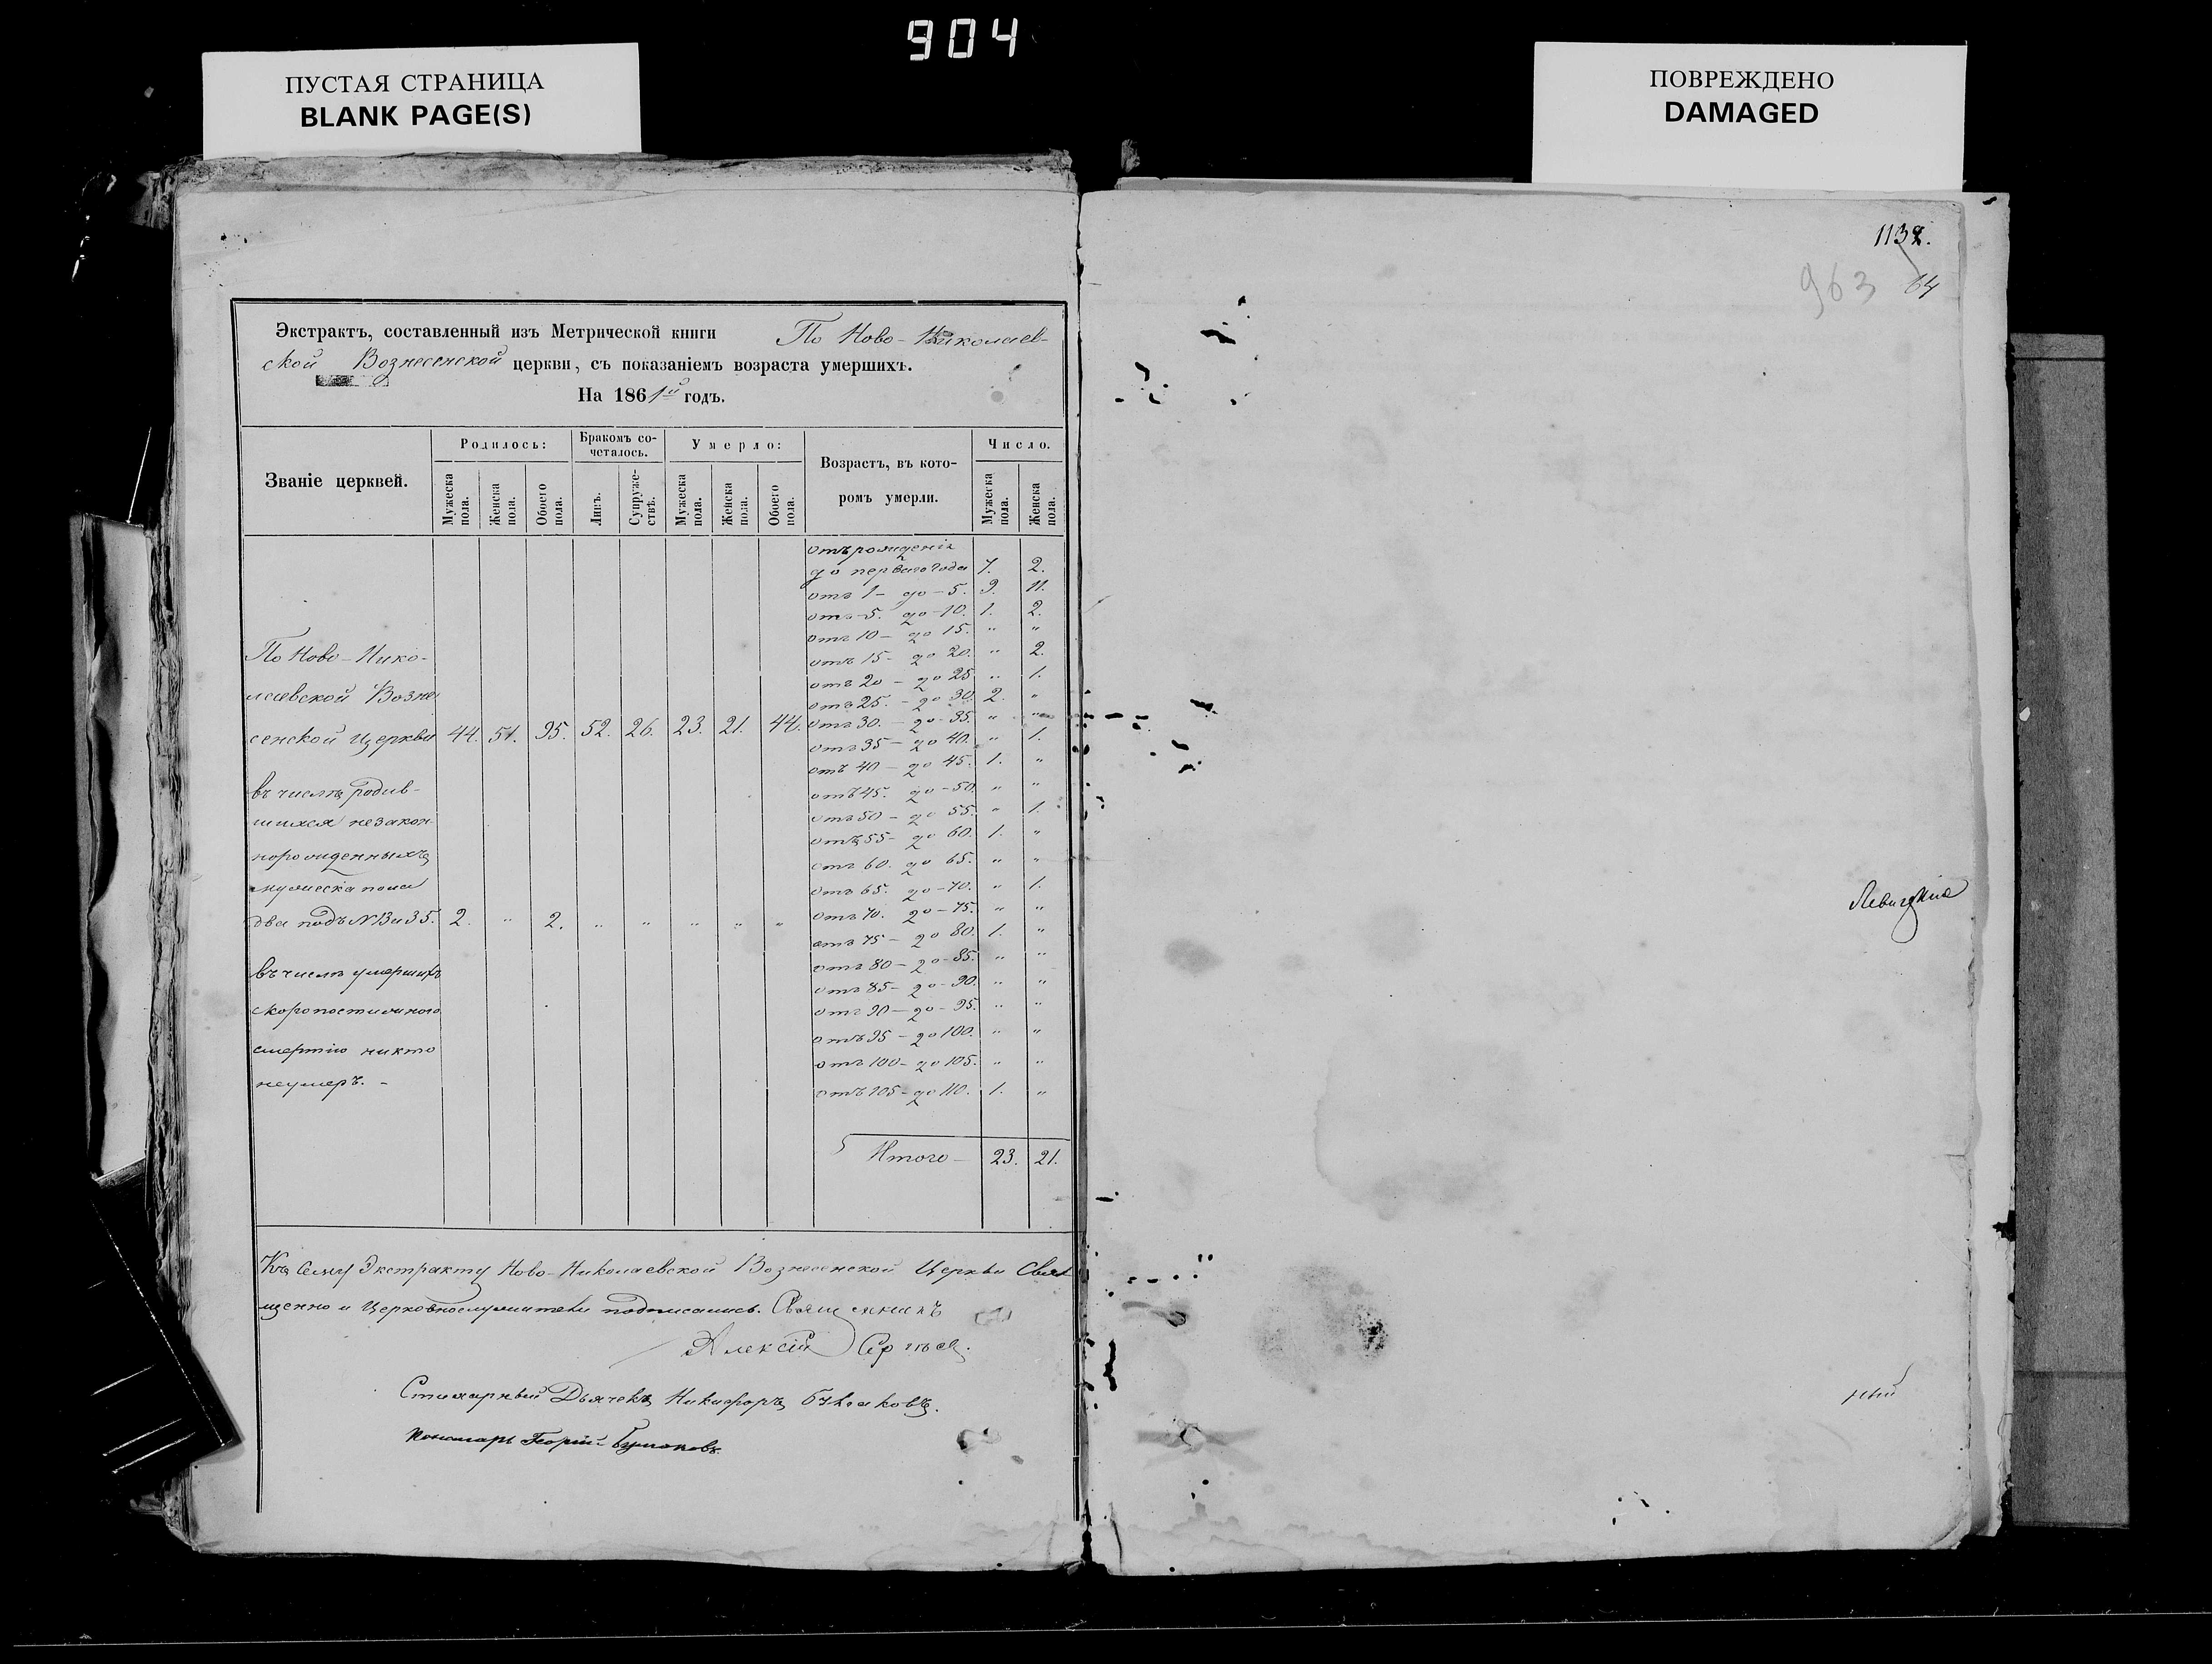 904
ПУСТАЯ СТРАНИЦА
BLANK PAGE(S)
ПОВРЕЖДЕНО
DAMAGED
Экстрактъ, составленный изъ Метрической книги По Ново-Николаев-
ской Вознесенской церкви, съ показаніемъ возраста умершихъ.
На 1861й годъ.
Званіе церквей.
Родилось:
Мужеска пола.
Женска пола.
Обоего пола.
Бракомъ со-
четалось.
Лицъ.
Супруже-
ствъ.
Умерло:
Мужеска пола.
Женска пола.
Обоего пола.
Возрастъ, въ кото-
ромъ умерли.
Число.
Мужеска пола.
Женска пола.
отъ рожденія
до перваго года 7. 2.
отъ 1- до - 5. 9. 11.
отъ 5. до - 10. 1. 2.
отъ 10 - до 15. " "
отъ 15 - до 20. " 2.
отъ 20 - до 25 " 1.
отъ 25. - до 30 2. "
отъ 30. - до - 35. " "
отъ 35 - до 40. " 1.
отъ 40 - до 45. 1. "
отъ 45. до - 50. " "
отъ 50 - до 55. " 1.
отъ 55 - до 60. 1. "
отъ 60. до 65. " "
отъ 65. до - 70. " 1.
отъ 70. до - 75. " "
отъ 75 - до 80. 1. "
отъ 80 - до - 85. " "
отъ 85 - до - 90. " "
отъ 90 - до - 95. " "
отъ 95 - до 100. " "
отъ 100 - до 105. " "
отъ 105 - до 110. 1. "
Итого - 23. 21.
По Ново-Нико-
лаевской Возне
сенской Церкви 44. 51. 95. 52. 26. 23. 21. 44.
въ числѣ родив-
шихся незакон-
норожденныхъ
мужеска пола
два подъ N 13 и 35. 2. " 2. " " " " "
въ числѣ умершихъ
скоропостижного
смертію никто
неумеръ. -
Къ сему Экстракту Ново-Николаевской Вознесенской Церкви Свя
щенно и Церковнослужители подписались. Священникъ
Алексій Сергѣевъ.
Стихарный Дьячекъ Никифоръ
Пономарь Георгій
1132.
963 64
ный